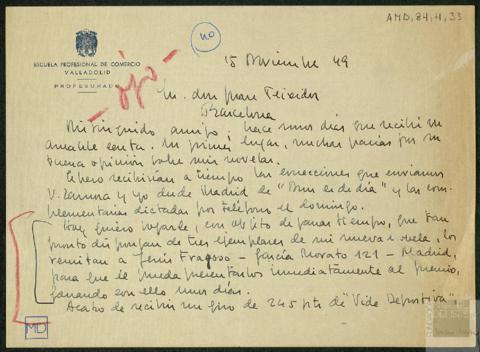 AMD,84,11,33
no
ojo
ESCUELA PROFESIONAL DE COMERCIO
VALLADOLID
PROFESORADO
15 Diciembre 49
Sr. don Juan Teixidor
Barcelona
Mi distinguido amigo, hace unos días que recibí su
amable carta. En primer lugar, muchas gracias por su
buena opinión sobre mis novelas.
Espero recibirían a tiempo las correcciones que enviamos
V. Zamora y yo desde Madrid de "Aún es de día" y las com-
plementarias dictadas por teléfono el domingo.
Hoy quiero rogarle, con objeto de ganar tiempo, que tan
pronto dispongan de tres ejemplares de mi nueva novela, los
remitan a Jesús Fragoso - García Morato 121 - Madrid,
para que él pueda presentarlos inmediatamente al premio,
ganando con ello unos días.
Acabo de recibir un giro de 245 pts de "Vida Deportiva"
MD